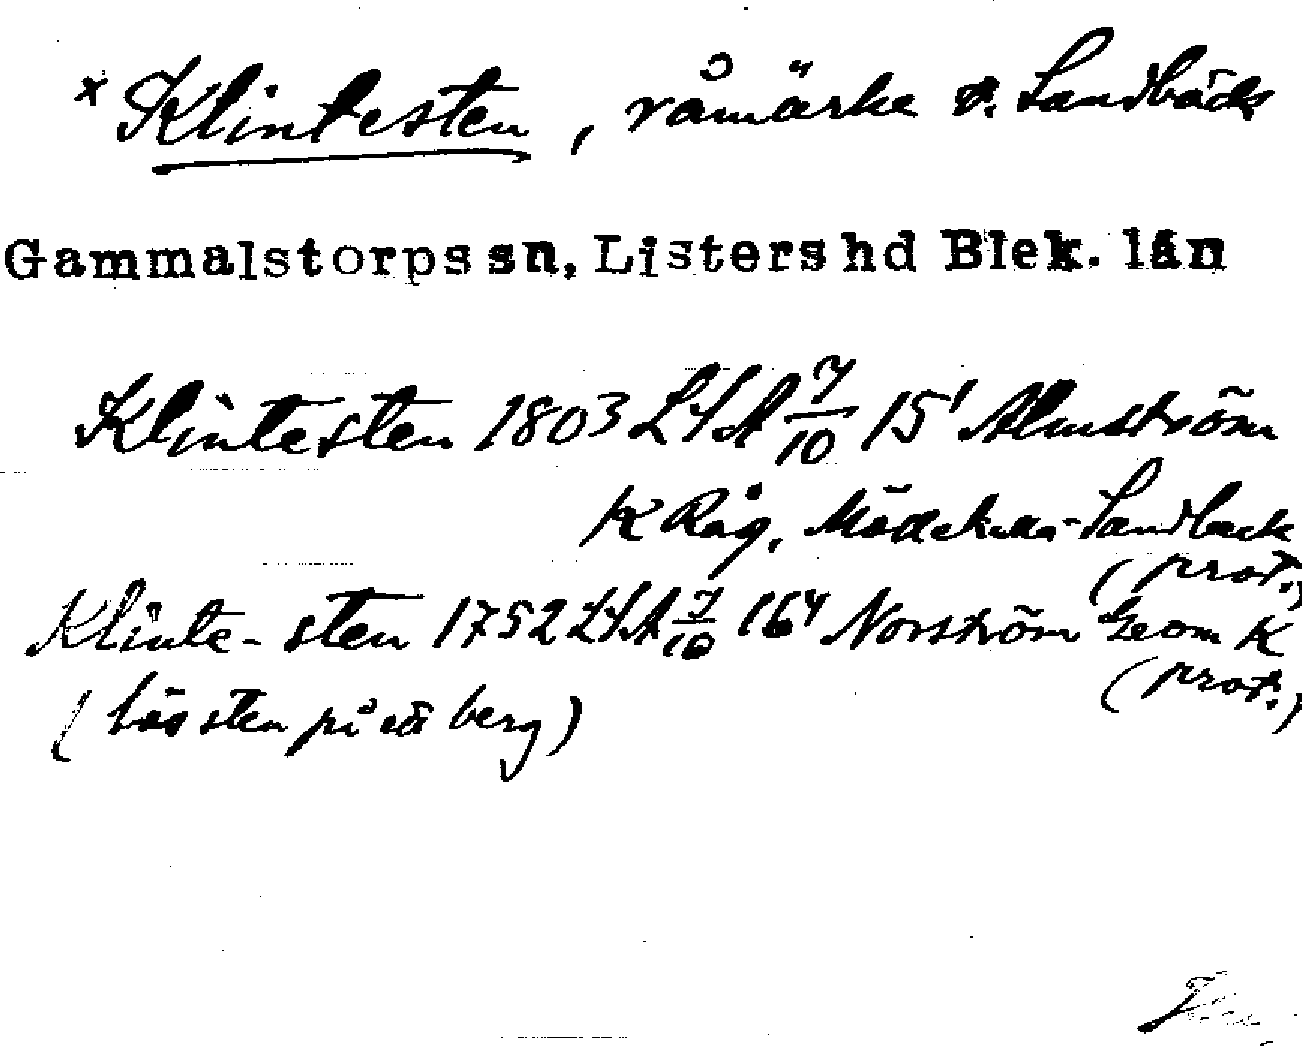 x Klintesten, råmärke v. Sandbäck
Gammalstorps sn, Listers hd Blek. län
Klintesten 1803 LSA 7/10 15' Almström
K Råg, Mödekulla-Sandback
(prot.)
Klinte-sten 1752 LSA 7/10 164 Norström Geom K
(prot.)
(lössten på ett berg)